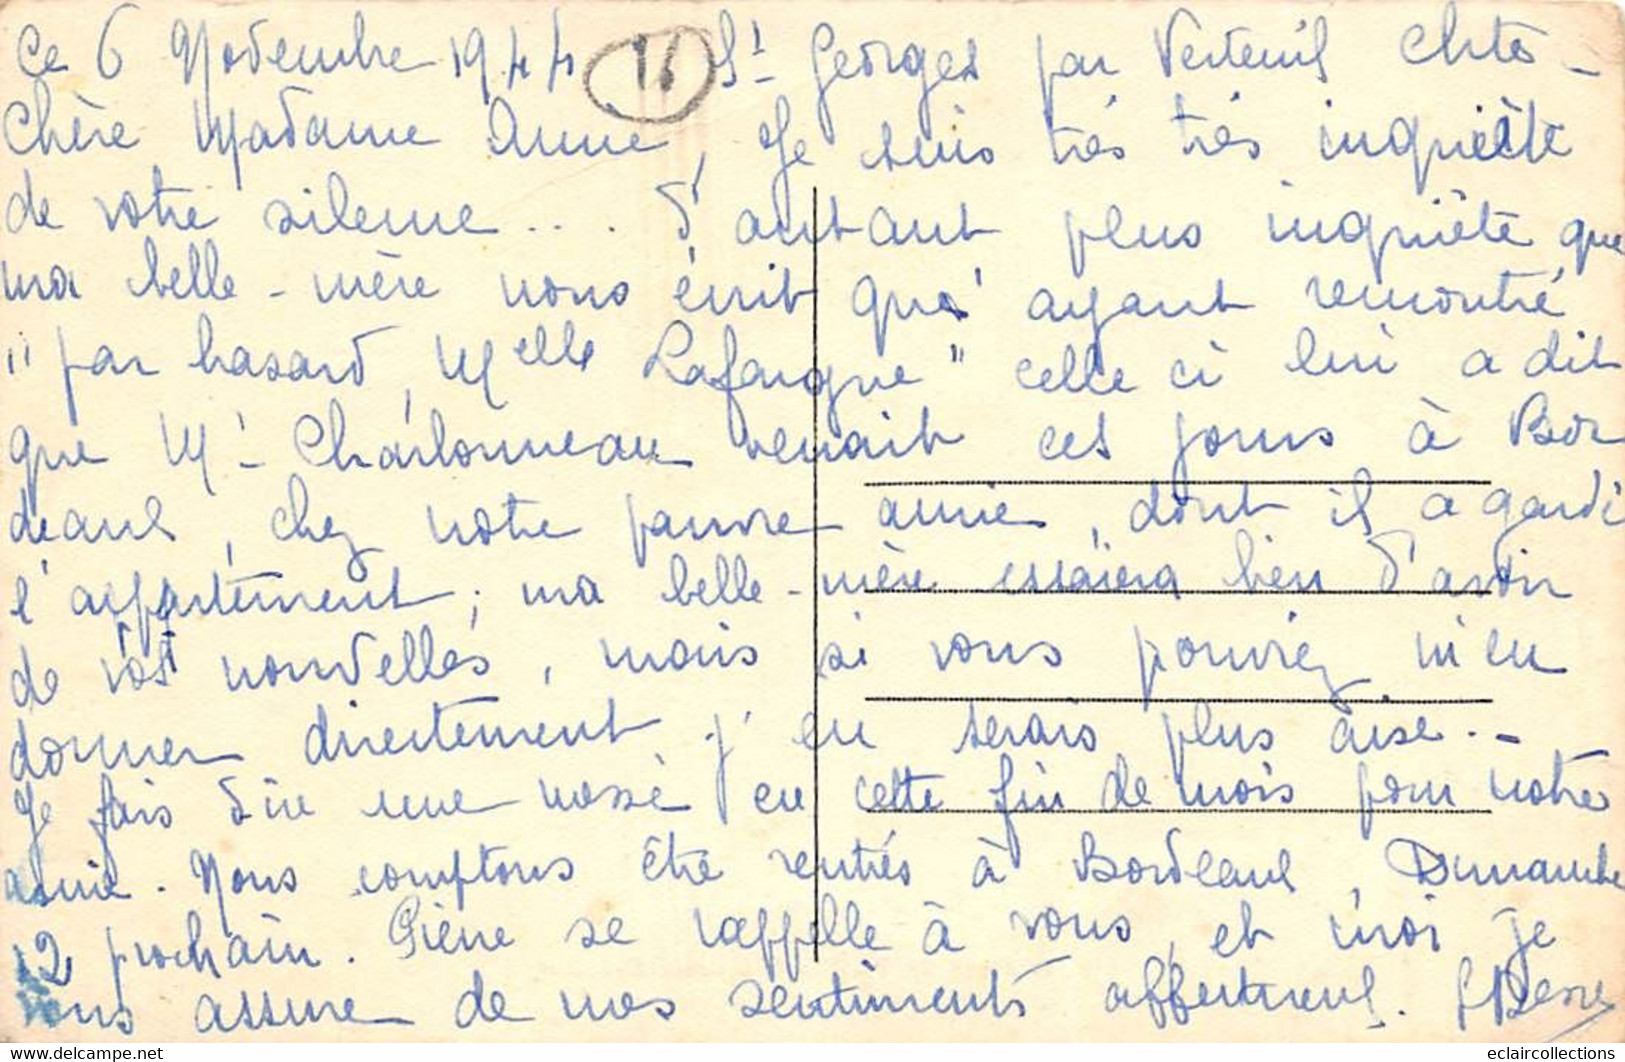 Ce 6 Novembre 1944 16 St Georges par Verteuil Chte -
Chère Madame Anne, Je suis très très inquiète
de votre silence... d'autant plus inquiète que
ma belle-mère nous écrit qu' ayant rencontré
"par hasard Melle Lafargue" celle ci lui a dit
que Mr Charlonneau venait ces jours à Bor
deaux, chez notre pauvre amie, dont il a gardé
l'appartement; ma belle-mère essaiera bien d'avoir
de vos nouvelles, mais si vous pouviez m'en
donner directement j'en serais plus aise.-
Je fais dire une messe en cette fin de mois pour notre
amie. Nous comptons être rentrés à Bordeaux, Dimanche
12 prochain. Pierre se rappelle à vous, et moi je
vous assure de mes sentiments affectueux.
eclaircollections